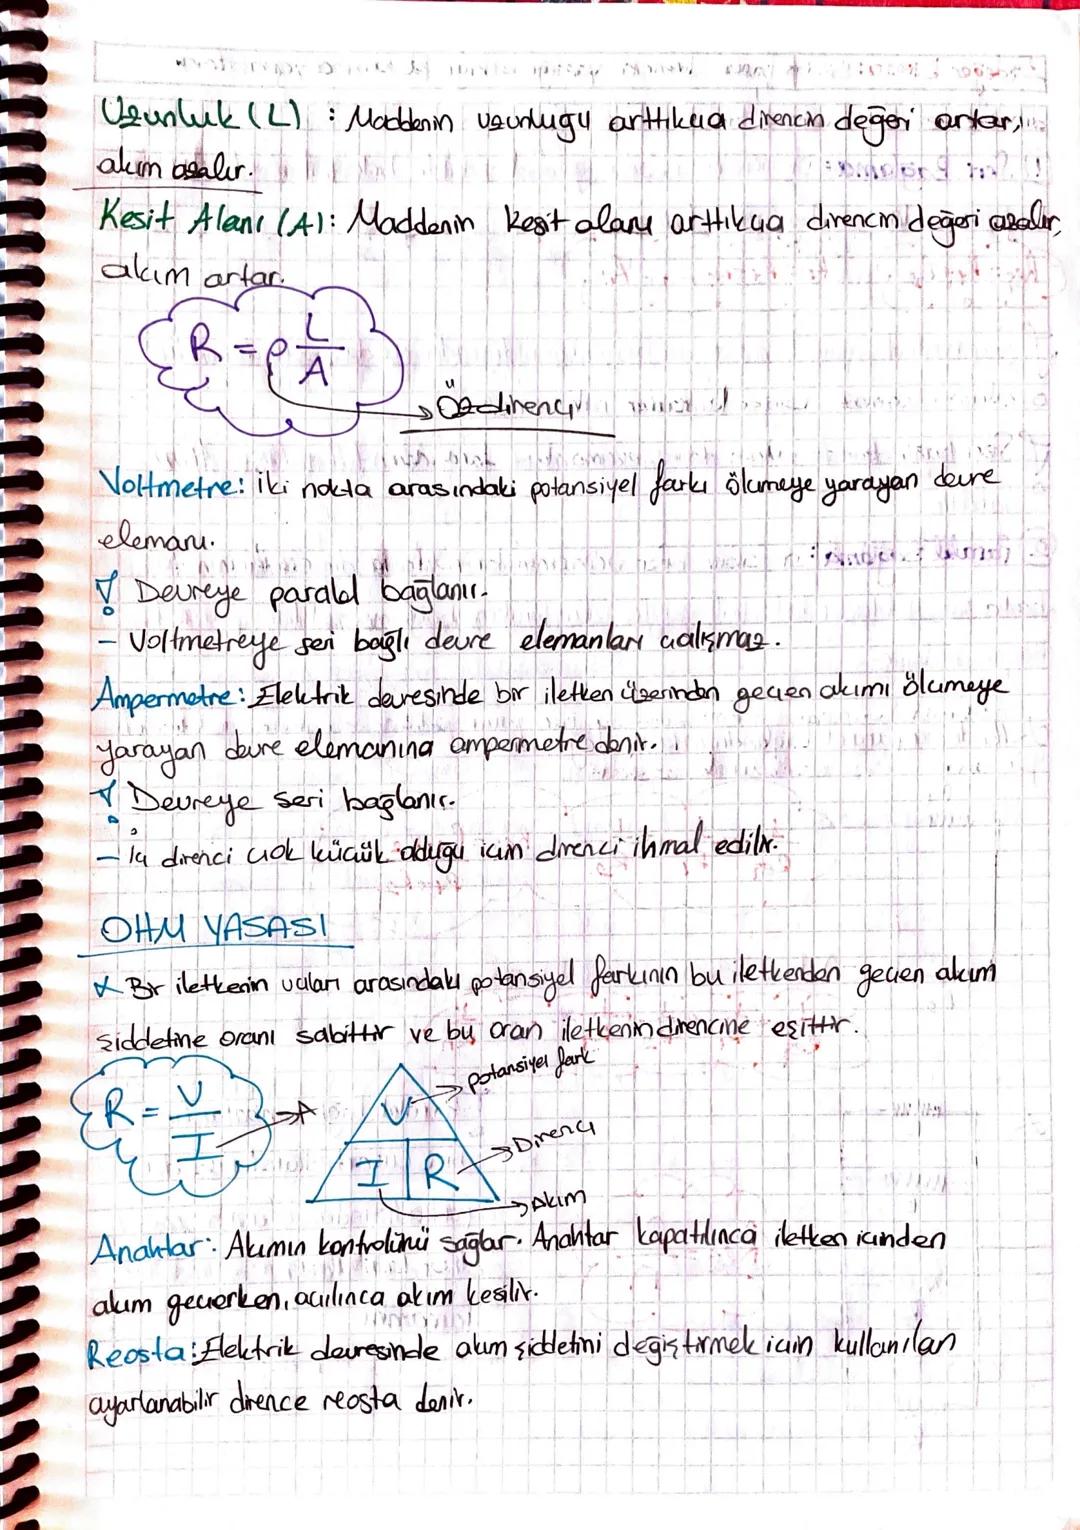 Uzunluk (L) : Maddenin uzunluğu arttıkça direncin değeri artar,
akım azalır.
Kesit Alanı (A): Maddenin kesit alanı arttıkça direncin değeri azalır,
akım artar.
R = ρ L/A
Özdirenç
Voltmetre: İki nokta arasındaki potansiyel farkı ölçmeye yarayan devre
elemanı.
! Devreye paralel bağlanır.
- Voltmetreye seri bağlı devre elemanları çalışmaz.
Ampermetre: Elektrik devresinde bir iletken üzerinden geçen akımı ölçmeye
yarayan devre elemanına ampermetre denir.
! Devreye seri bağlanır.
- İç direnci çok küçük olduğu için direnci ihmal edilir.
OHM YASASI
* Bir iletkenin uçları arasındaki potansiyel farkının bu iletkenden geçen akım
şiddetine oranı sabittir ve bu oran iletkenin direncine eşittir.
R = V/I
V → potansiyel fark
I R → Direnç
→ Akım
Anahtar: Akımın kontrolünü sağlar. Anahtar kapatılınca iletken içinden
akım geçerken, açılınca akım kesilir.
Reosta: Elektrik devresinde akım şiddetini değiştirmek için kullanılan
ayarlanabilir dirence reosta denir.